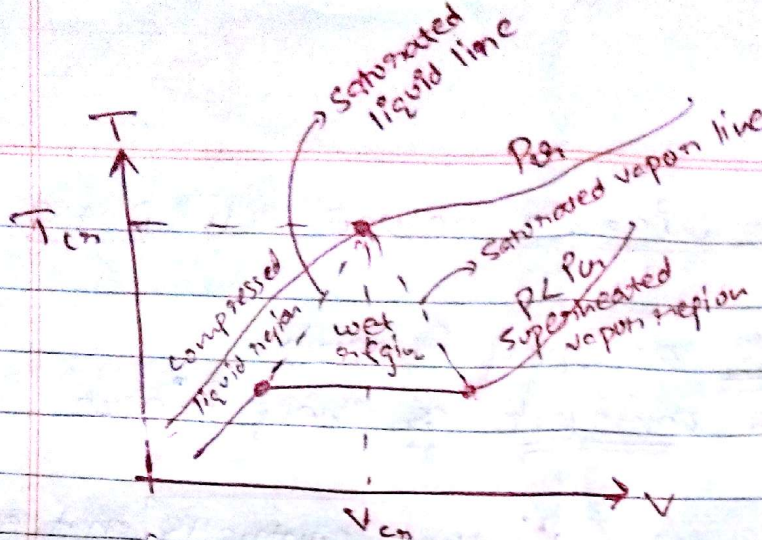 Saturated
liquid line
T
Pcr
Saturated vapor line
Tcr
compressed
liquid region
wet
region
P<Pcr
Superheated
vapor region
V
Vcr